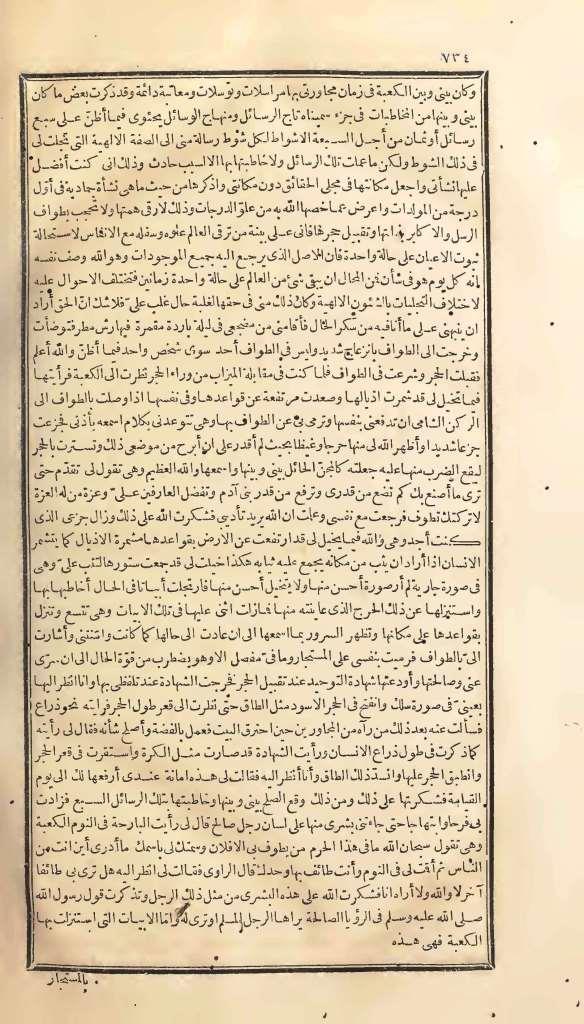 ٧٣٤
وكان بيني وبين الكعبة في زمان مجاورتي بها مراسلات وتوسلات ومعاتبة دائمة وقد ذكرت بعض ما كان
بيني وبينها من المخاطبات في جزء سميناه تاج الرسائل ومنهاج الوسائل يحتوي فيما أظن على سبع
رسائل أو ثمان من أجل السبعة الاشواط لكل شوط رسالة مني الى الصفة الالهية التي تجلت لي
في ذلك الشوط ولكن ما عملت تلك الرسائل ولا خاطبتها بها الا لسبب حادث وذلك اني كنت أفضل
عليها نشأتي واجعل مكانتها في مجلى الحقائق دون مكانتي واذكرها من حيث ما هي نشأة جمادية في أول
درجة من المولدات واعرض عما خصها الله به من علو الدرجات وذلك لأرقى همتها ولا تحجب بطواف
الرسل والاكابر بذاتها وتقبيل حجرها فاني على بينة من ترقي العالم علوه وسفله مع الانفاس لاستحالة
ثبوت الاعيان على حالة واحدة فان الاصل الذي يرجع اليه جميع الموجودات وهو الله وصف نفسه
انه كل يوم هو في شأن فمن المحال ان يبقى شئ من العالم على حالة واحدة زمانين فتختلف الاحوال عليه
لاختلاف التجليات بالشئون الالهية وكان ذلك مني في حقها لغلبة حال غلب علي فلا شك انّ الحق أراد
ان ينبهني على ما أنا فيه من سكر الحال فأقامني من مضجعي في ليلة باردة مقمرة فيها رش مطر فتوضأت
وخرجت الى الطواف بانزعاج شديد وليس في الطواف أحد سوى شخص واحد فيما أظنّ والله أعلم
فقبلت الحجر وشرعت في الطواف فلما كنت في مقابلة الميزاب من وراء الحجر نظرت الى الكعبة فرأيتها
فيما تخيل لي قد شمرت اذيالها وصعدت مرتفعة عن قواعدها وفي نفسها اذا وصلت بالطواف الى
الركن الشامي ان تدفعني بنفسها وترمي بي عن الطواف بها وهي تتوعدني بكلام اسمعه بأذني فجزعت
جزعا شديدا وأظهر الله لي منها حرجا وغيظا بحيث لم أقدر على ان أبرح من موضعي ذلك وتسترت بالحجر
ليقع الضرب منها عليه جعلته كالمجنّ الحائل بيني وبينها واسمعها والله العظيم وهي تقول لي تقدّم حتى
ترى ما أصنع بك كم تضع من قدري وترفع من قدر بني آدم وتفضل العارفين عليّ وعزة من له العزة
لا تركتك تطوف فرجعت مع نفسي وعلمت ان الله يريد تأديبي فشكرت الله على ذلك وزال جزعي الذي
كنت أجده وهي والله فيما يخيل لي قد ارتفعت عن الارض بقواعدها مشمرة الاذيال كما يتشمر
الانسان اذا أراد ان يثب من مكانه يجمع عليه ثيابه هكذا خيلت لي قد جمعت ستورها لتثب عليّ وهي
في صورة جارية لم أر صورة أحسن منها ولا يتخيل أحسن منها فارتجلت أبياتا في الحال أخاطبها بها
واستنزلها عن ذلك الحرج الذي عاينته منها فما زلت اثني عليها في تلك الابيات وهي تتسع وتنزل
بقواعدها على مكانها وتظهر السرور بما اسمعها الى ان عادت الى حالها كما كانت وامنتني وأشارت
اليّ بالطواف فرميت بنفسي على المستجار وما فيّ مفصل الا وهو يضطرب من قوّة الحال الى ان سرّى
عني وصالحتها وأودعتها شهادة التوحيد عند تقبيل الحجر فخرجت الشهادة عند تلفظي بها وانا انظر اليها
بعينيّ في صورة سلك وانفتح في الحجر الاسود مثل الطاق حتى نظرت الى قعر طول الحجر فرأيته نحو ذراع
فسألت عنه بعد ذلك من رآه من المجاورين حين احترق البيت فعمل بالفضة وأصلح شأنه فقال لي رأيته
كما ذكرت في طول ذراع الانسان ورأيت الشهادة قد صارت مثل الكرة واستقرت في قعر الحجر
وانطبق الحجر عليها وانسدّ ذلك الطاق وأنا أنظر اليه فقالت لي هذه امانة عندي أرفعها لك الى يوم
القيامة فشكرتها على ذلك ومن ذلك وقع الصلح بيني وبينها وخاطبتها بتلك الرسائل السبع فزادت
بي فرحا وابتهاجا حتى جاءتني بشرى منها على لسان رجل صالح قال لي رأيت البارحة في النوم الكعبة
وهي تقول سبحان الله ما في هذا الحرم من يطوف بي الا فلان وسمتك لي باسمك ما أدري أين انت من
الناس ثم أقمت لي في النوم وأنت طائف بها وحدك قال الراوي فقالت لي انظر اليه هل ترى بي طائفا
آخر لا والله ولا أراه انا فشكرت الله على هذه البشرى من مثل ذلك الرجل وتذكرت قول رسول الله
صلى الله عليه وسلم في الرؤيا الصالحة يراها الرجل المسلم او ترى له واما الابيات التي استنزلت بها
الكعبة فهي هذه
بالمستجار